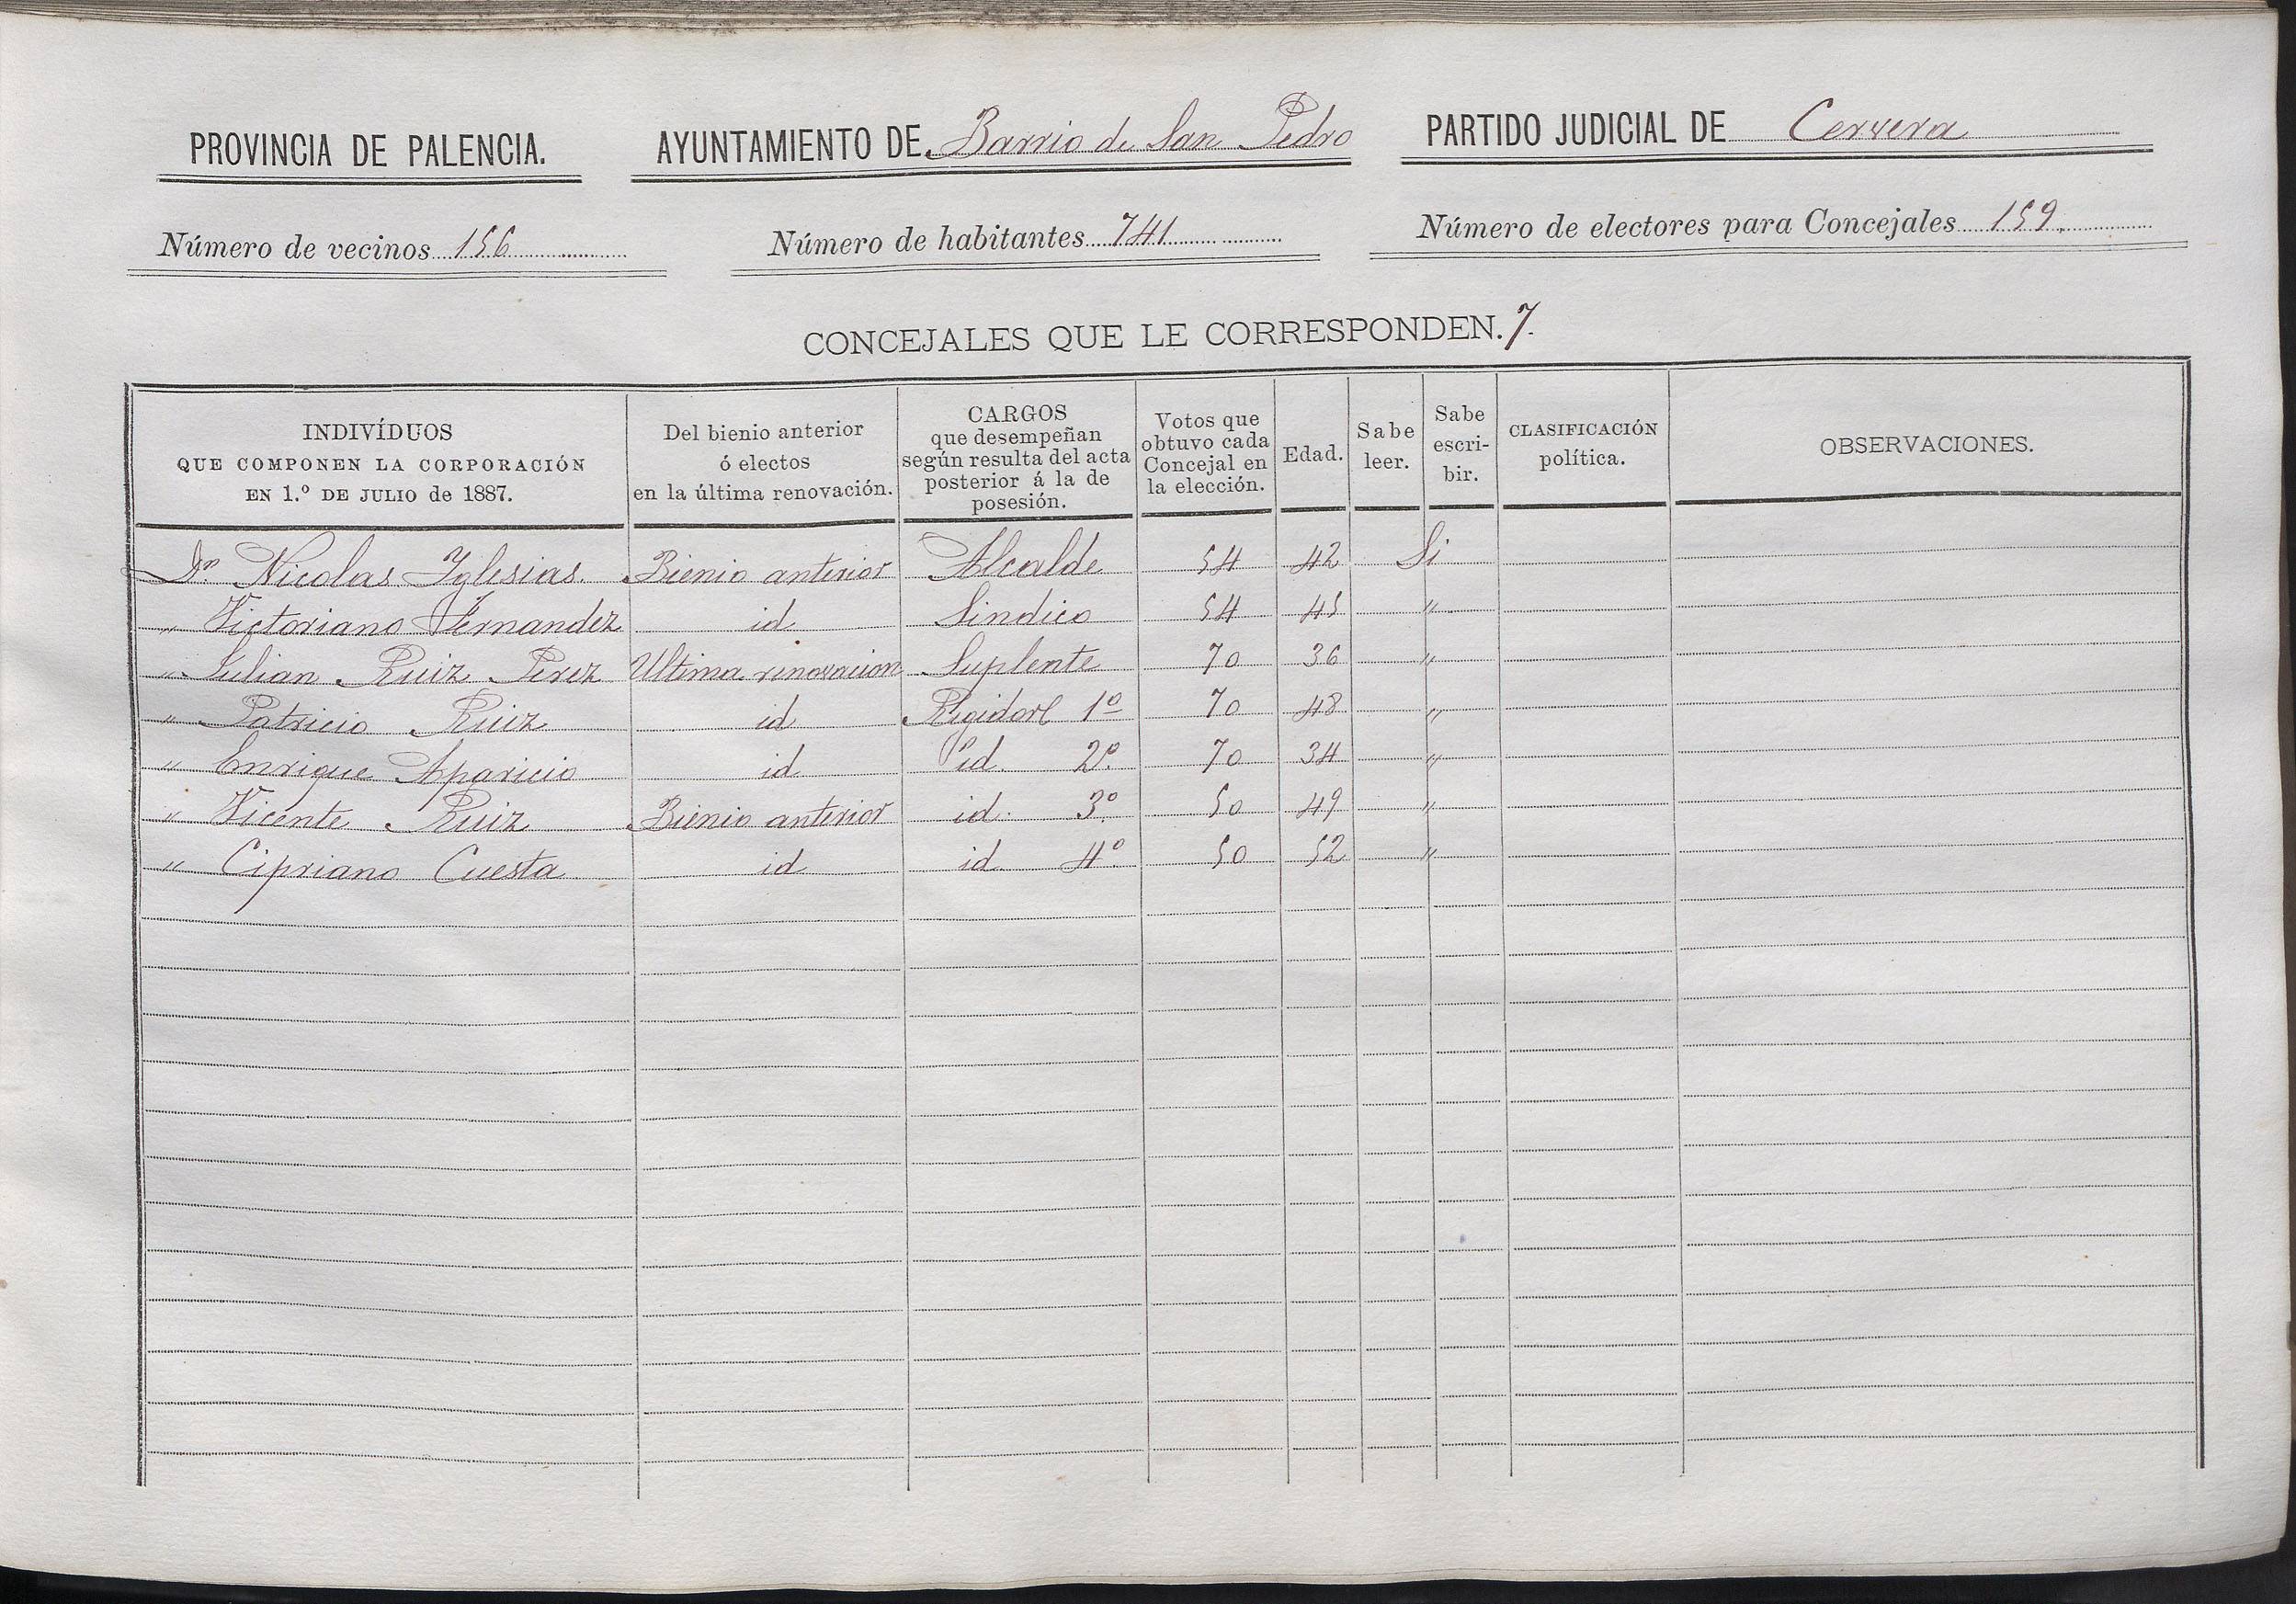 PROVINCIA DE PALENCIA. AYUNTAMIENTO DE Barrio de San Pedro PARTIDO JUDICIAL DE Cervera
Número de vecinos 156 Número de habitantes 741 Número de electores para Concejales 159
CONCEJALES QUE LE CORRESPONDEN. 7.
INDIVÍDUOS
QUE COMPONEN LA CORPORACIÓN
EN 1.º DE JULIO de 1887.
Del bienio anterior
ó electos
en la última renovación.
CARGOS
que desempeñan
según resulta del acta
posterior á la de
posesión.
Votos que
obtuvo cada
Concejal en
la elección.
Edad.
Sabe
leer.
Sabe
escri-
bir.
CLASIFICACIÓN
política.
OBSERVACIONES.
Dn. Nicolas Yglesias. Bienio anterior Alcalde 54 42 Si
" Victoriano Fernandez id Sindico 54 45 "
" Julian Ruiz Perez Ultima renovacion Suplente 70 36 "
" Patricio Ruiz id Regidor 1º 70 48 "
" Enrique Aparicio id id. 2º. 70 34 "
" Vicente Ruiz Bienio anterior id. 3º. 50 49 "
" Cipriano Cuesta id id. 4º. 50 52 "